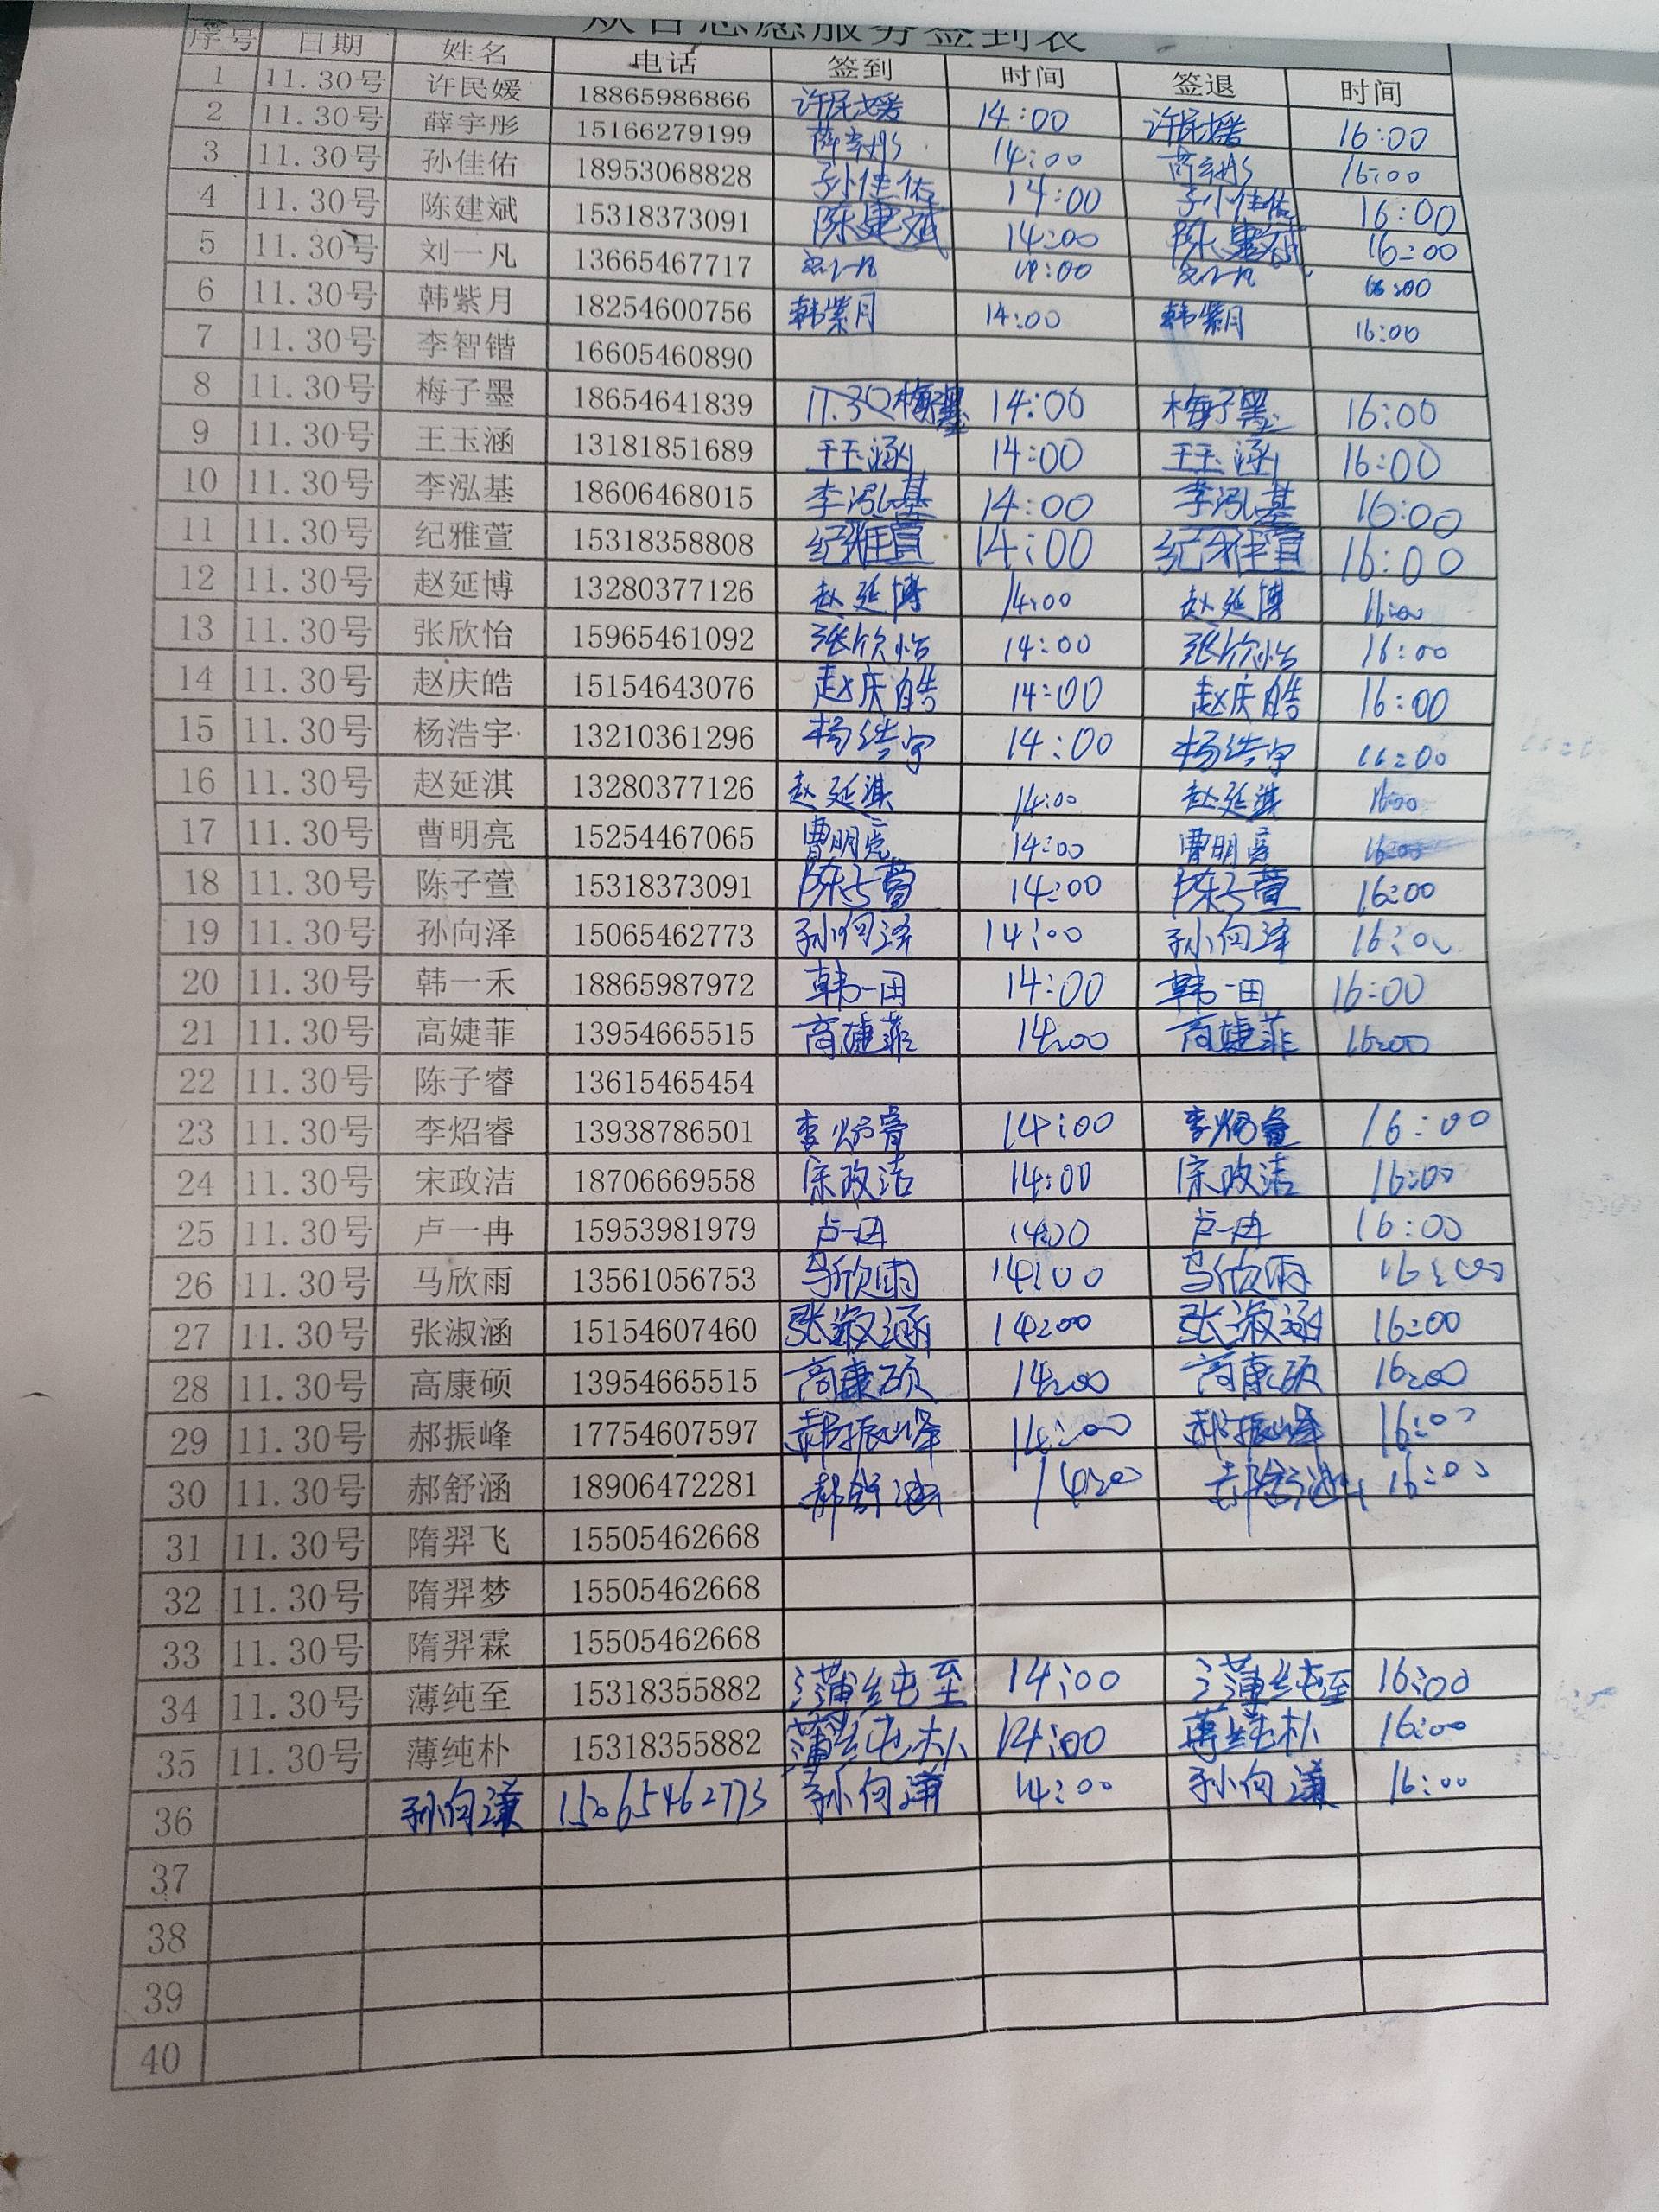 志愿服务签到表
序号 日期 姓名 电话 签到 时间 签退 时间
1 11.30号 许民媛 18865986866 许民媛 14:00 许民媛 16:00
2 11.30号 薛宇彤 15166279199 薛宇彤 14:00 薛宇彤 16:00
3 11.30号 孙佳佑 18953068828 孙佳佑 14:00 孙佳佑 16:00
4 11.30号 陈建斌 15318373091 陈建斌 14:00 陈建斌 16:00
5 11.30号 刘一凡 13665467717 刘一凡 14:00 刘一凡 16:00
6 11.30号 韩紫月 18254600756 韩紫月 14:00 韩紫月 16:00
7 11.30号 李智锴 16605460890
8 11.30号 梅子墨 18654641839 11.30梅子墨 14:00 梅子墨 16:00
9 11.30号 王玉涵 13181851689 王玉涵 14:00 王玉涵 16:00
10 11.30号 李泓基 18606468015 李泓基 14:00 李泓基 16:00
11 11.30号 纪雅萱 15318358808 纪雅萱 14:00 纪雅萱 16:00
12 11.30号 赵延博 13280377126 赵延博 14:00 赵延博 16:00
13 11.30号 张欣怡 15965461092 张欣怡 14:00 张欣怡 16:00
14 11.30号 赵庆皓 15154643076 赵庆皓 14:00 赵庆皓 16:00
15 11.30号 杨浩宇 13210361296 杨浩宇 14:00 杨浩宇 16:00
16 11.30号 赵延淇 13280377126 赵延淇 14:00 赵延淇 16:00
17 11.30号 曹明亮 15254467065 曹明亮 14:00 曹明亮 16:00
18 11.30号 陈子萱 15318373091 陈子萱 14:00 陈子萱 16:00
19 11.30号 孙向泽 15065462773 孙向泽 14:00 孙向泽 16:00
20 11.30号 韩一禾 18865987972 韩一田 14:00 韩一田 16:00
21 11.30号 高婕菲 13954665515 高婕菲 14:00 高婕菲 16:00
22 11.30号 陈子睿 13615465454
23 11.30号 李炤睿 13938786501 李炤睿 14:00 李炤睿 16:00
24 11.30号 宋政洁 18706669558 宋政洁 14:00 宋政洁 16:00
25 11.30号 卢一冉 15953981979 卢一冉 14:00 卢一冉 16:00
26 11.30号 马欣雨 13561056753 马欣雨 14:00 马欣雨 16:00
27 11.30号 张淑涵 15154607460 张淑涵 14:00 张淑涵 16:00
28 11.30号 高康硕 13954665515 高康硕 14:00 高康硕 16:00
29 11.30号 郝振峰 17754607597 郝振峰 14:00 郝振峰 16:00
30 11.30号 郝舒涵 18906472281 郝舒涵 14:00 郝舒涵 16:00
31 11.30号 隋羿飞 15505462668
32 11.30号 隋羿梦 15505462668
33 11.30号 隋羿霖 15505462668
34 11.30号 薄纯至 15318355882 薄纯至 14:00 薄纯至 16:00
35 11.30号 薄纯朴 15318355882 薄纯朴 14:00 薄纯朴 16:00
36 孙向谦 15065462773 孙向谦 14:00 孙向谦 16:00
37
38
39
40